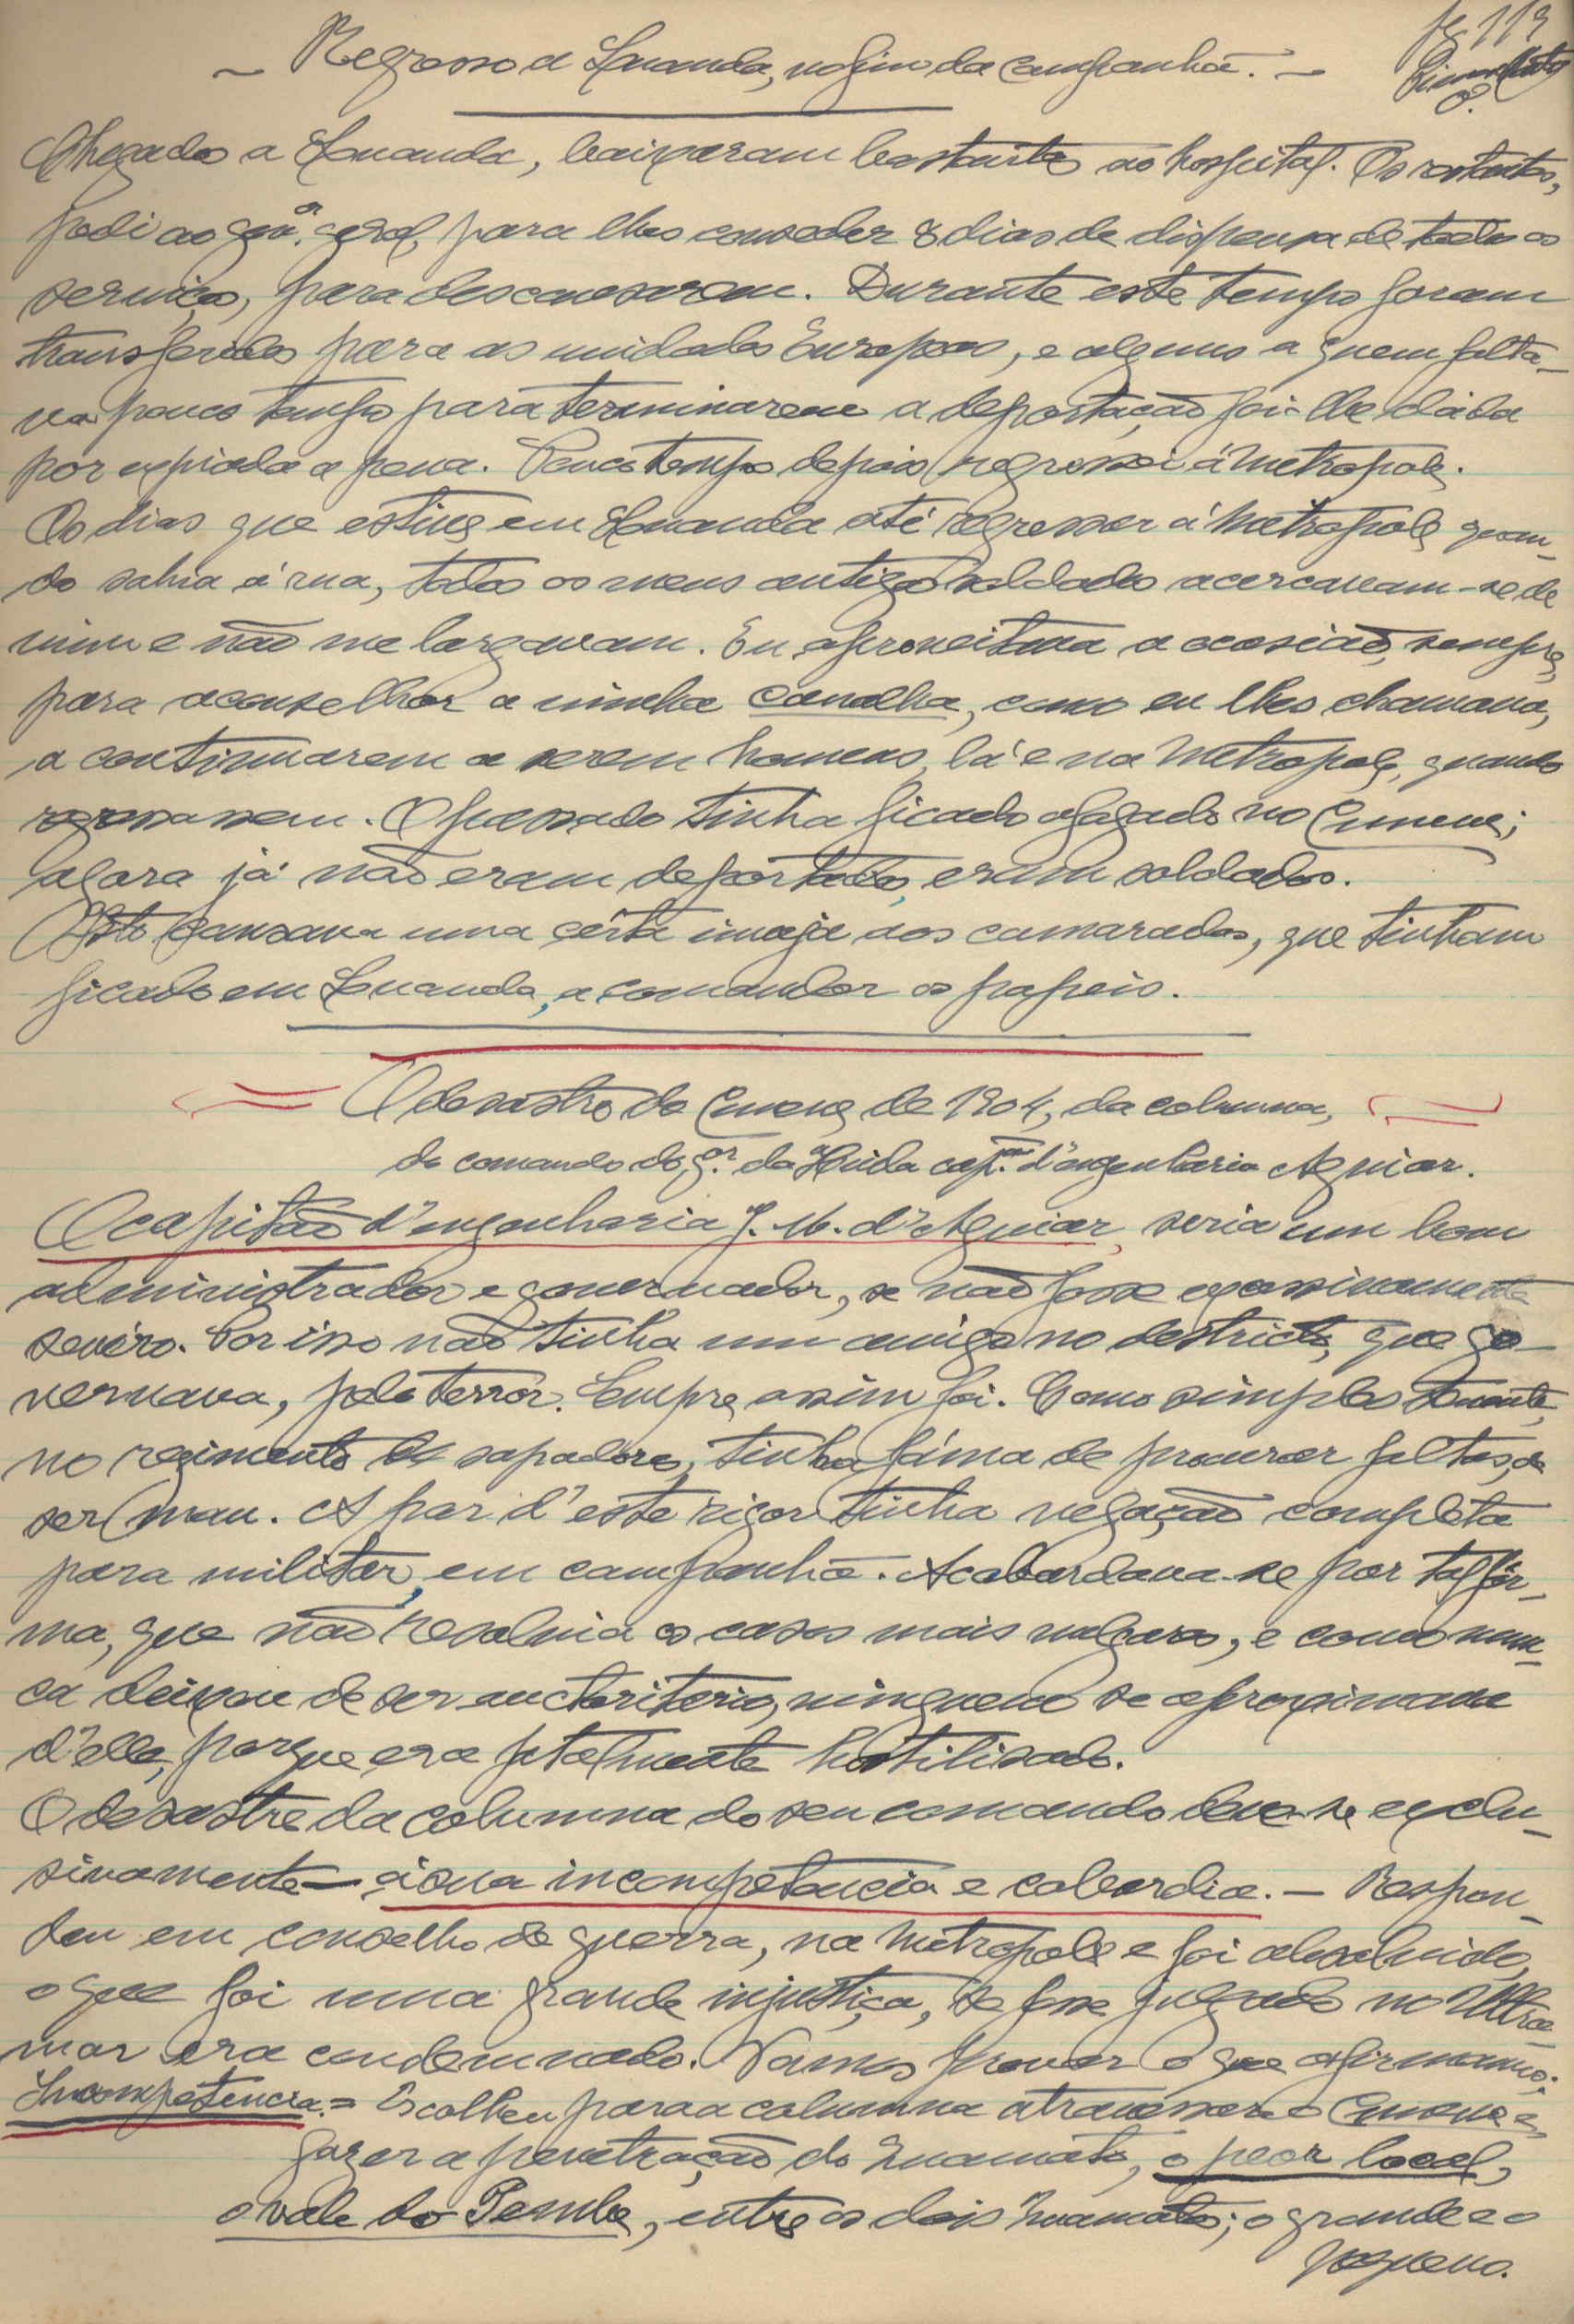 fs 113
— Regresso a Luanda, no fim da campanha. —
Chegados a Luanda, baixaram bastantes ao hospital. Os restantes,
pedi ao gov.or geral, para lhes conceder 8 dias de dispensa de todos os
serviços, para descansarem. Durante este tempo foram
transferidos para as unidades Europeas, e alguns a quem falta-
va pouco tempo para terminarem a deportação foi-lhe dada
por expiada a pena. Pouco tempo depois regressei á Metropole.
Os dias que estive em Luanda até regressar á Metropole quan-
do sahia á rua, todos os meus antigos soldados acercavam-se de
mim e não me largavam. Eu aproveitava a ocasião, sempre,
para aconselhar a minha canalha, como eu lhes chamava,
a continuarem a serem homens, lá e na Metropole, quando
regressassem. O passado tinha ficado afogado no Cunene;
agora já não eram deportados, eram soldados.
Isto causava uma certa inveja aos camaradas, que tinham
ficado em Luanda, a comandar os papeis.
O desastre do Cunene de 1904, da columna,
do comando do g.or da Huila cap.am d'engenharia Aguiar.
O capitão d'engenharia J. M. d'Aguiar, seria um bom
administrador e governador, se não fosse excessivamente
sevéro. Por isso não tinha um amigo no destricto, que go-
vernava, pelo terrôr. Sempre assim foi. Como simples tenente,
no regimento de sapadores, tinha fáma de procurar faltas, de
ser mau. A par d'este rigor tinha negação completa
para militar, em campanha. Acobardava-se por tal fór-
ma, que não resolvia os casos mais vulgares, e como nun-
ca deixou de ser auctoritario, ninguem se aproximava
d'elle, porque era fatalmente hostilisado.
O desastre da columna do seu comando deve-se exclu-
sivamente — á sua incompetencia e cobardia. — Respon-
deu em conselho de guerra, na Metropole e foi absolvido,
o que foi uma grande injustiça, se fosse julgado no Ultra-
mar era condemnado. Vamos provar o que afirmamos:
Incompetencia. = Escolheu para a columna atravessar o Cunene e
fazer a penetração do Cuamato, o peor local,
o vale do Pembe, entre os dois Cuamatos; o grande e o
pequeno.